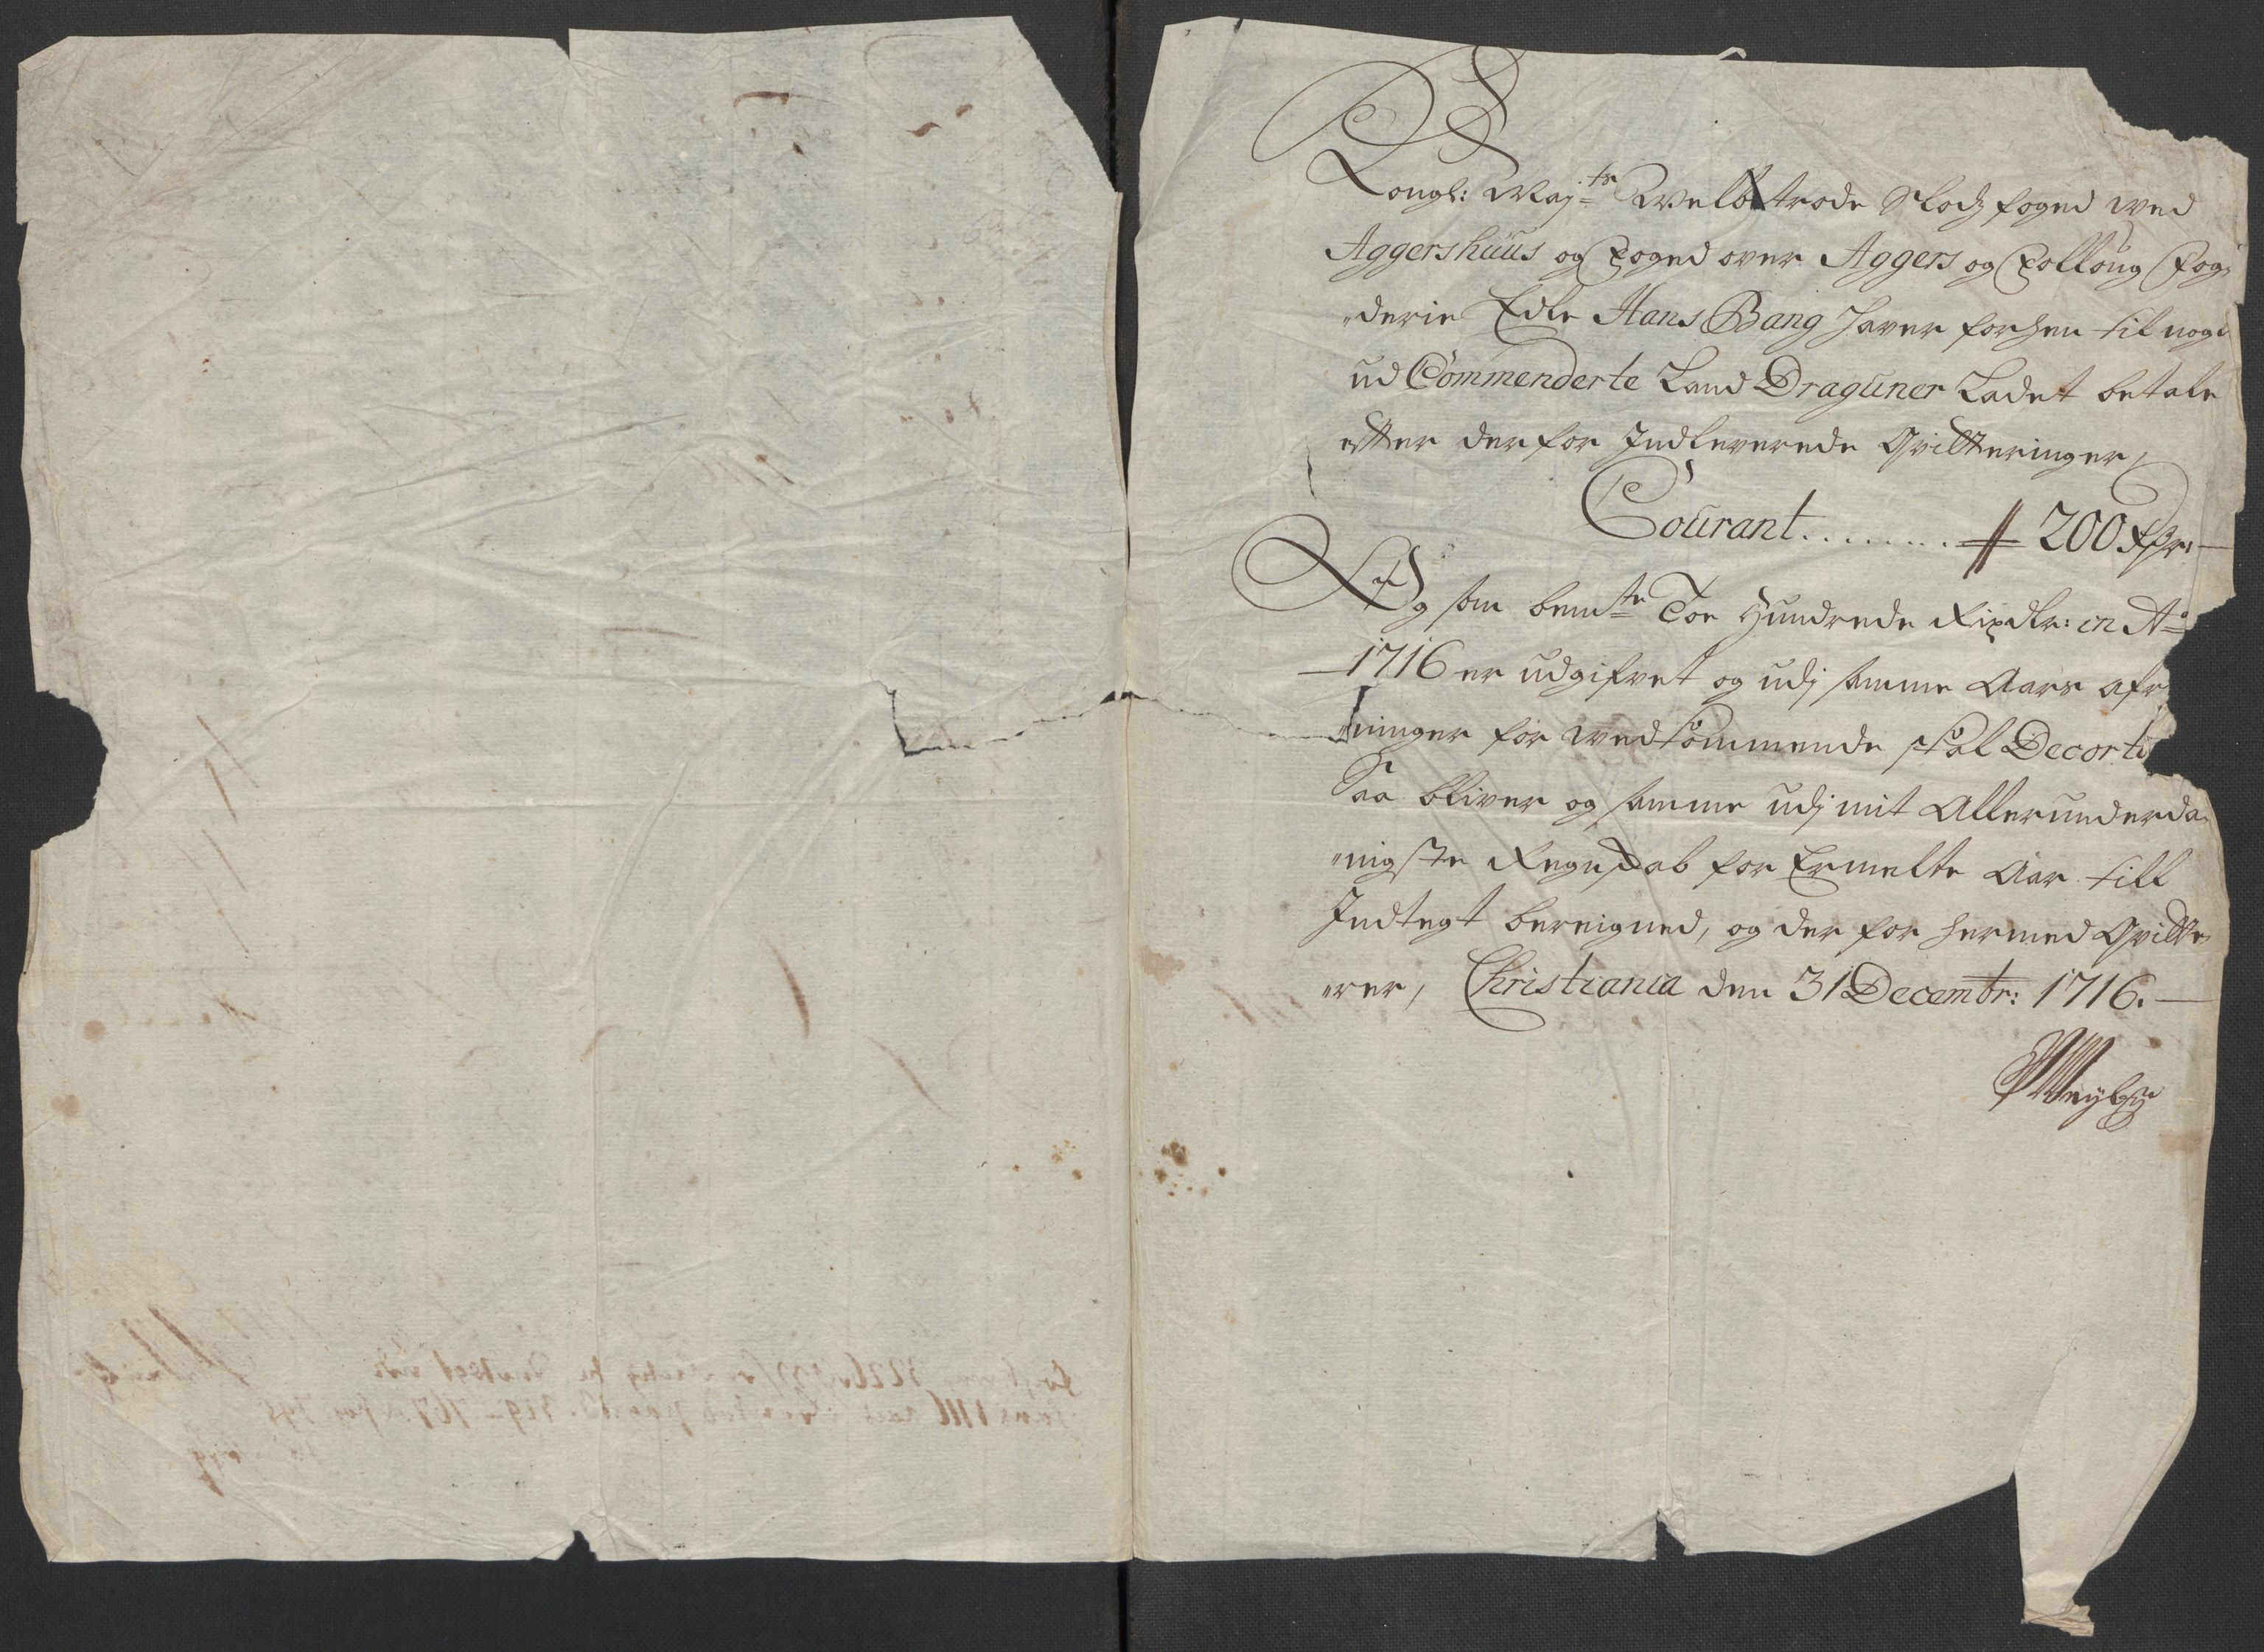 Kongl: Maj:ts Welbetrode Slodz foged wed
Aggershuus og Foged over Aggers og Folloug Fog
"derie Edle Hans Bang Haver forhen til nogl
ud Commenderte Land Draguner Ladet betale
efter derfor Indleverede Qvitteringer,
Courant ........ 200 Rdr:
Og som bemte Toe Hundrede Rixdlr: in Ao
1716 er udgifvet og udj samme Aars afr
ninger for wedkommende skal Decorti
Saa bliver og samme udj mit Allerunderda
"nigste Regnskab for Ermelte Aar till
Indtegt bereigned, og der for hermed Qvitte
"rer, Christiania den 31 Decembr: 1716.